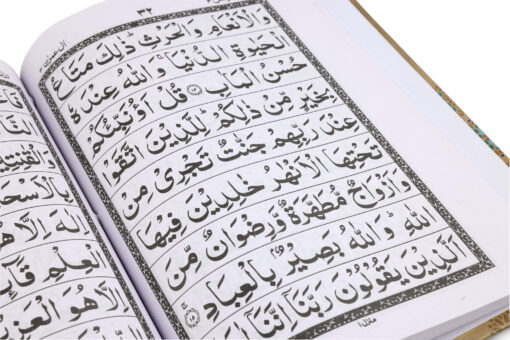 ۳۲
اٰل عمرٰن ۳
وَالْاَنْعَامِ وَالْحَرْثِ ؕ ذٰلِكَ مَتَاعُ
الْحَيٰوةِ الدُّنْيَا ۚ وَاللّٰهُ عِنْدَهٗ
حُسْنُ الْمَاٰبِ ۱۴ قُلْ اَؤُنَبِّئُكُمْ
بِخَيْرٍ مِّنْ ذٰلِكُمْ ؕ لِلَّذِيْنَ اتَّقَوْا
عِنْدَ رَبِّهِمْ جَنّٰتٌ تَجْرِيْ مِنْ
تَحْتِهَا الْاَنْهٰرُ خٰلِدِيْنَ فِيْهَا
وَاَزْوَاجٌ مُّطَهَّرَةٌ وَّرِضْوَانٌ مِّنَ
اللّٰهِ ؕ وَاللّٰهُ بَصِيْرٌۢ بِالْعِبَادِ ۱۵
اَلَّذِيْنَ يَقُوْلُوْنَ رَبَّنَاۤ اِنَّنَاۤ
منزل ۱
بِالْاَسْحَا
اِلٰهَ اِلَّا هُوَ
الْعِلْمِ قَآئِ
اِلَّا هُوَ الْعَزِيْ